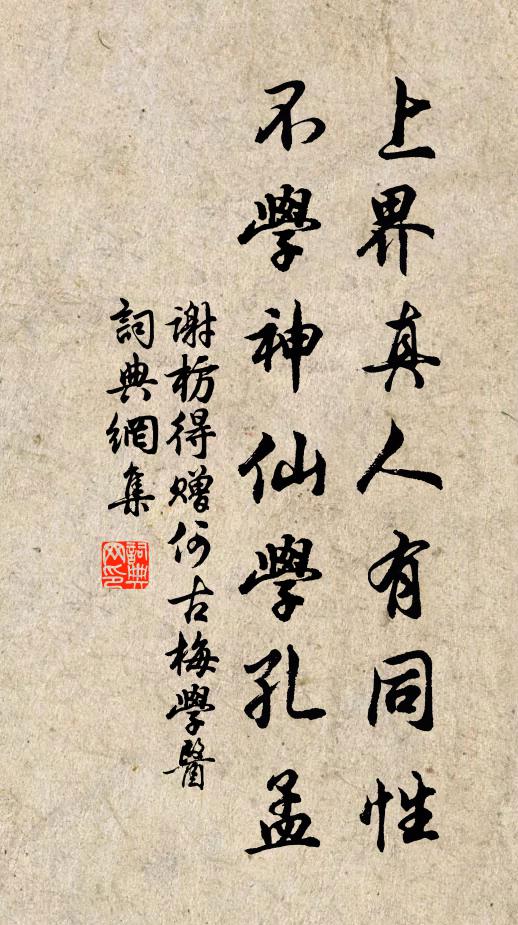 上界真人有同性
不學神仙學孔孟
谢枋得赠何古梅學醫
詞典網集
詞典網印